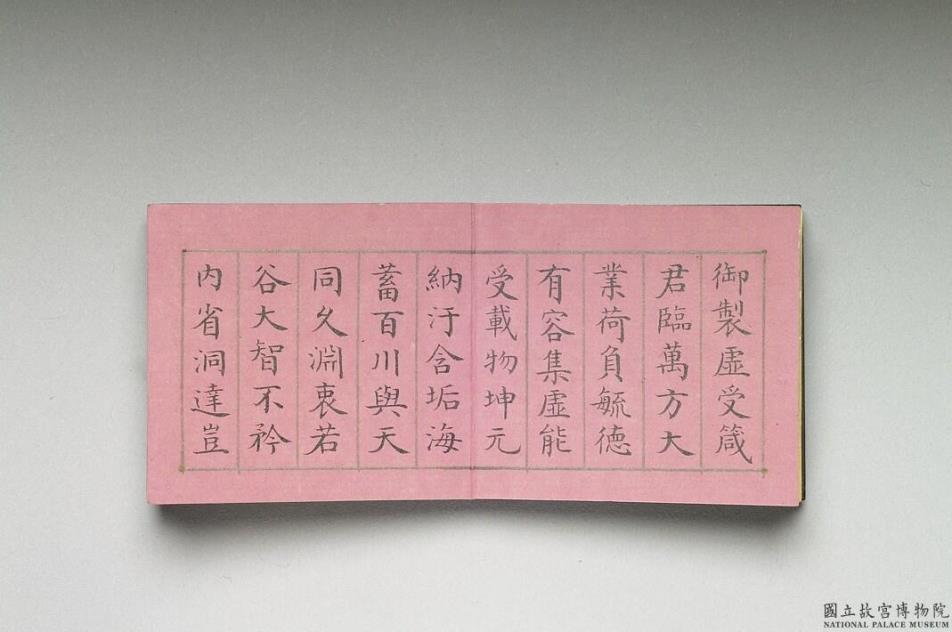 御製虛受箴
君臨萬方大
業荷負毓德
有容集虛能
受載物坤元
納汙含垢海
蓄百川與天
同久淵衷若
谷大智不矜
内省洞達豈
國立故宮博物院
NATIONAL PALACE MUSEUM